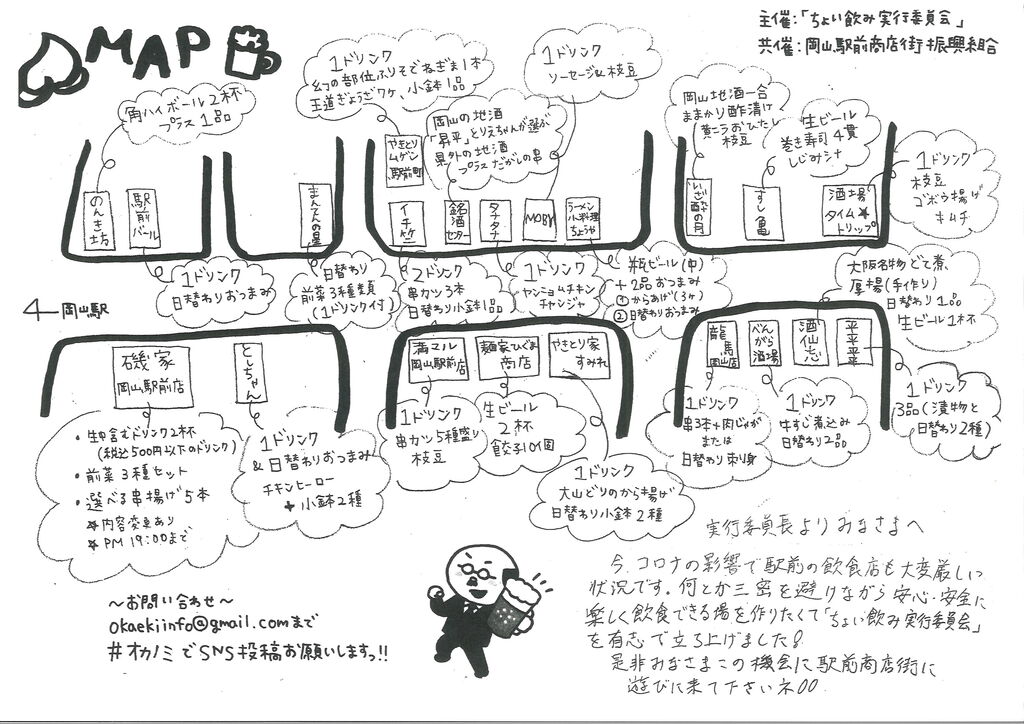 MAP
主催:「ちょい飲み実行委員会」
共催:岡山駅前商店街振興組合
角ハイボール2杯
プラス1品
1ドリンク
幻の部位ふりそでねぎま1本
王道ぎょうざ7ヶ、小鉢1品
1ドリンク
ソーセージ&枝豆
岡山の地酒
「昇平」とりえちゃんが選ぶ
県外の地酒
プラスだがしの串
岡山地酒一合
ままかり酢漬け
黄ニラおひたし
枝豆
生ビール
巻き寿司4貫
しじみ汁
1ドリンク
枝豆
ゴボウ揚げ
キムチ
のんき坊
駅前バール
まんてんの星
やきとり
ムゲン
駅前町
イチ竹
銘酒
センター
タチ
タチ
MOBY
ラーメン
小料理
ちょうや
いざ酔の月
すし亀
酒場
タイム★
トリップ
1ドリンク
日替わりおつまみ
日替わり
前菜3種類
(1ドリンク付)
2ドリンク
串カツ3本
日替わり小鉢1品
1ドリンク
ヤンニョムチキン
チャンジャ
瓶ビール(中)
+2品おつまみ
①からあげ(3ヶ)
②日替わりおつまみ
大阪名物どて煮、
厚揚(手作り)
日替わり1品
生ビール1杯
岡山駅
磯家
岡山駅前店
としちゃん
満マル
岡山駅前店
麺家ひぐま
商店
やきとり家
すみれ
龍馬
岡山店
べんがら酒場
酒仙志
平平平
・生中含むドリンク2杯
(税込500円以下のドリンク)
・前菜3種セット
・選べる串揚げ5本
★内容変更あり
★PM 19:00まで
1ドリンク
&日替わりおつまみ
チキンヒーロー
+小鉢2種
1ドリンク
串カツ5種盛り
枝豆
生ビール
2杯
餃子10個
1ドリンク
大山どりのから揚げ
日替わり小鉢2種
1ドリンク
串3本+肉じゃが
または
日替わり刺り身
1ドリンク
牛すじ煮込み
日替わり2品
1ドリンク
3品(漬物と
日替わり2種)
実行委員長よりみなさまへ
今、コロナの影響で駅前の飲食店も大変厳しい
状況です。何とか三密を避けながら安心・安全に
楽しく飲食できる場を作りたくて「ちょい飲み実行委員会」
を有志で立ち上げました!
是非みなさまこの機会に駅前商店街に
遊びに来て下さいネ!!
～お問い合わせ～
okaekiinfo@gmail.comまで
#オカノミでSNS投稿お願いしますっ!!